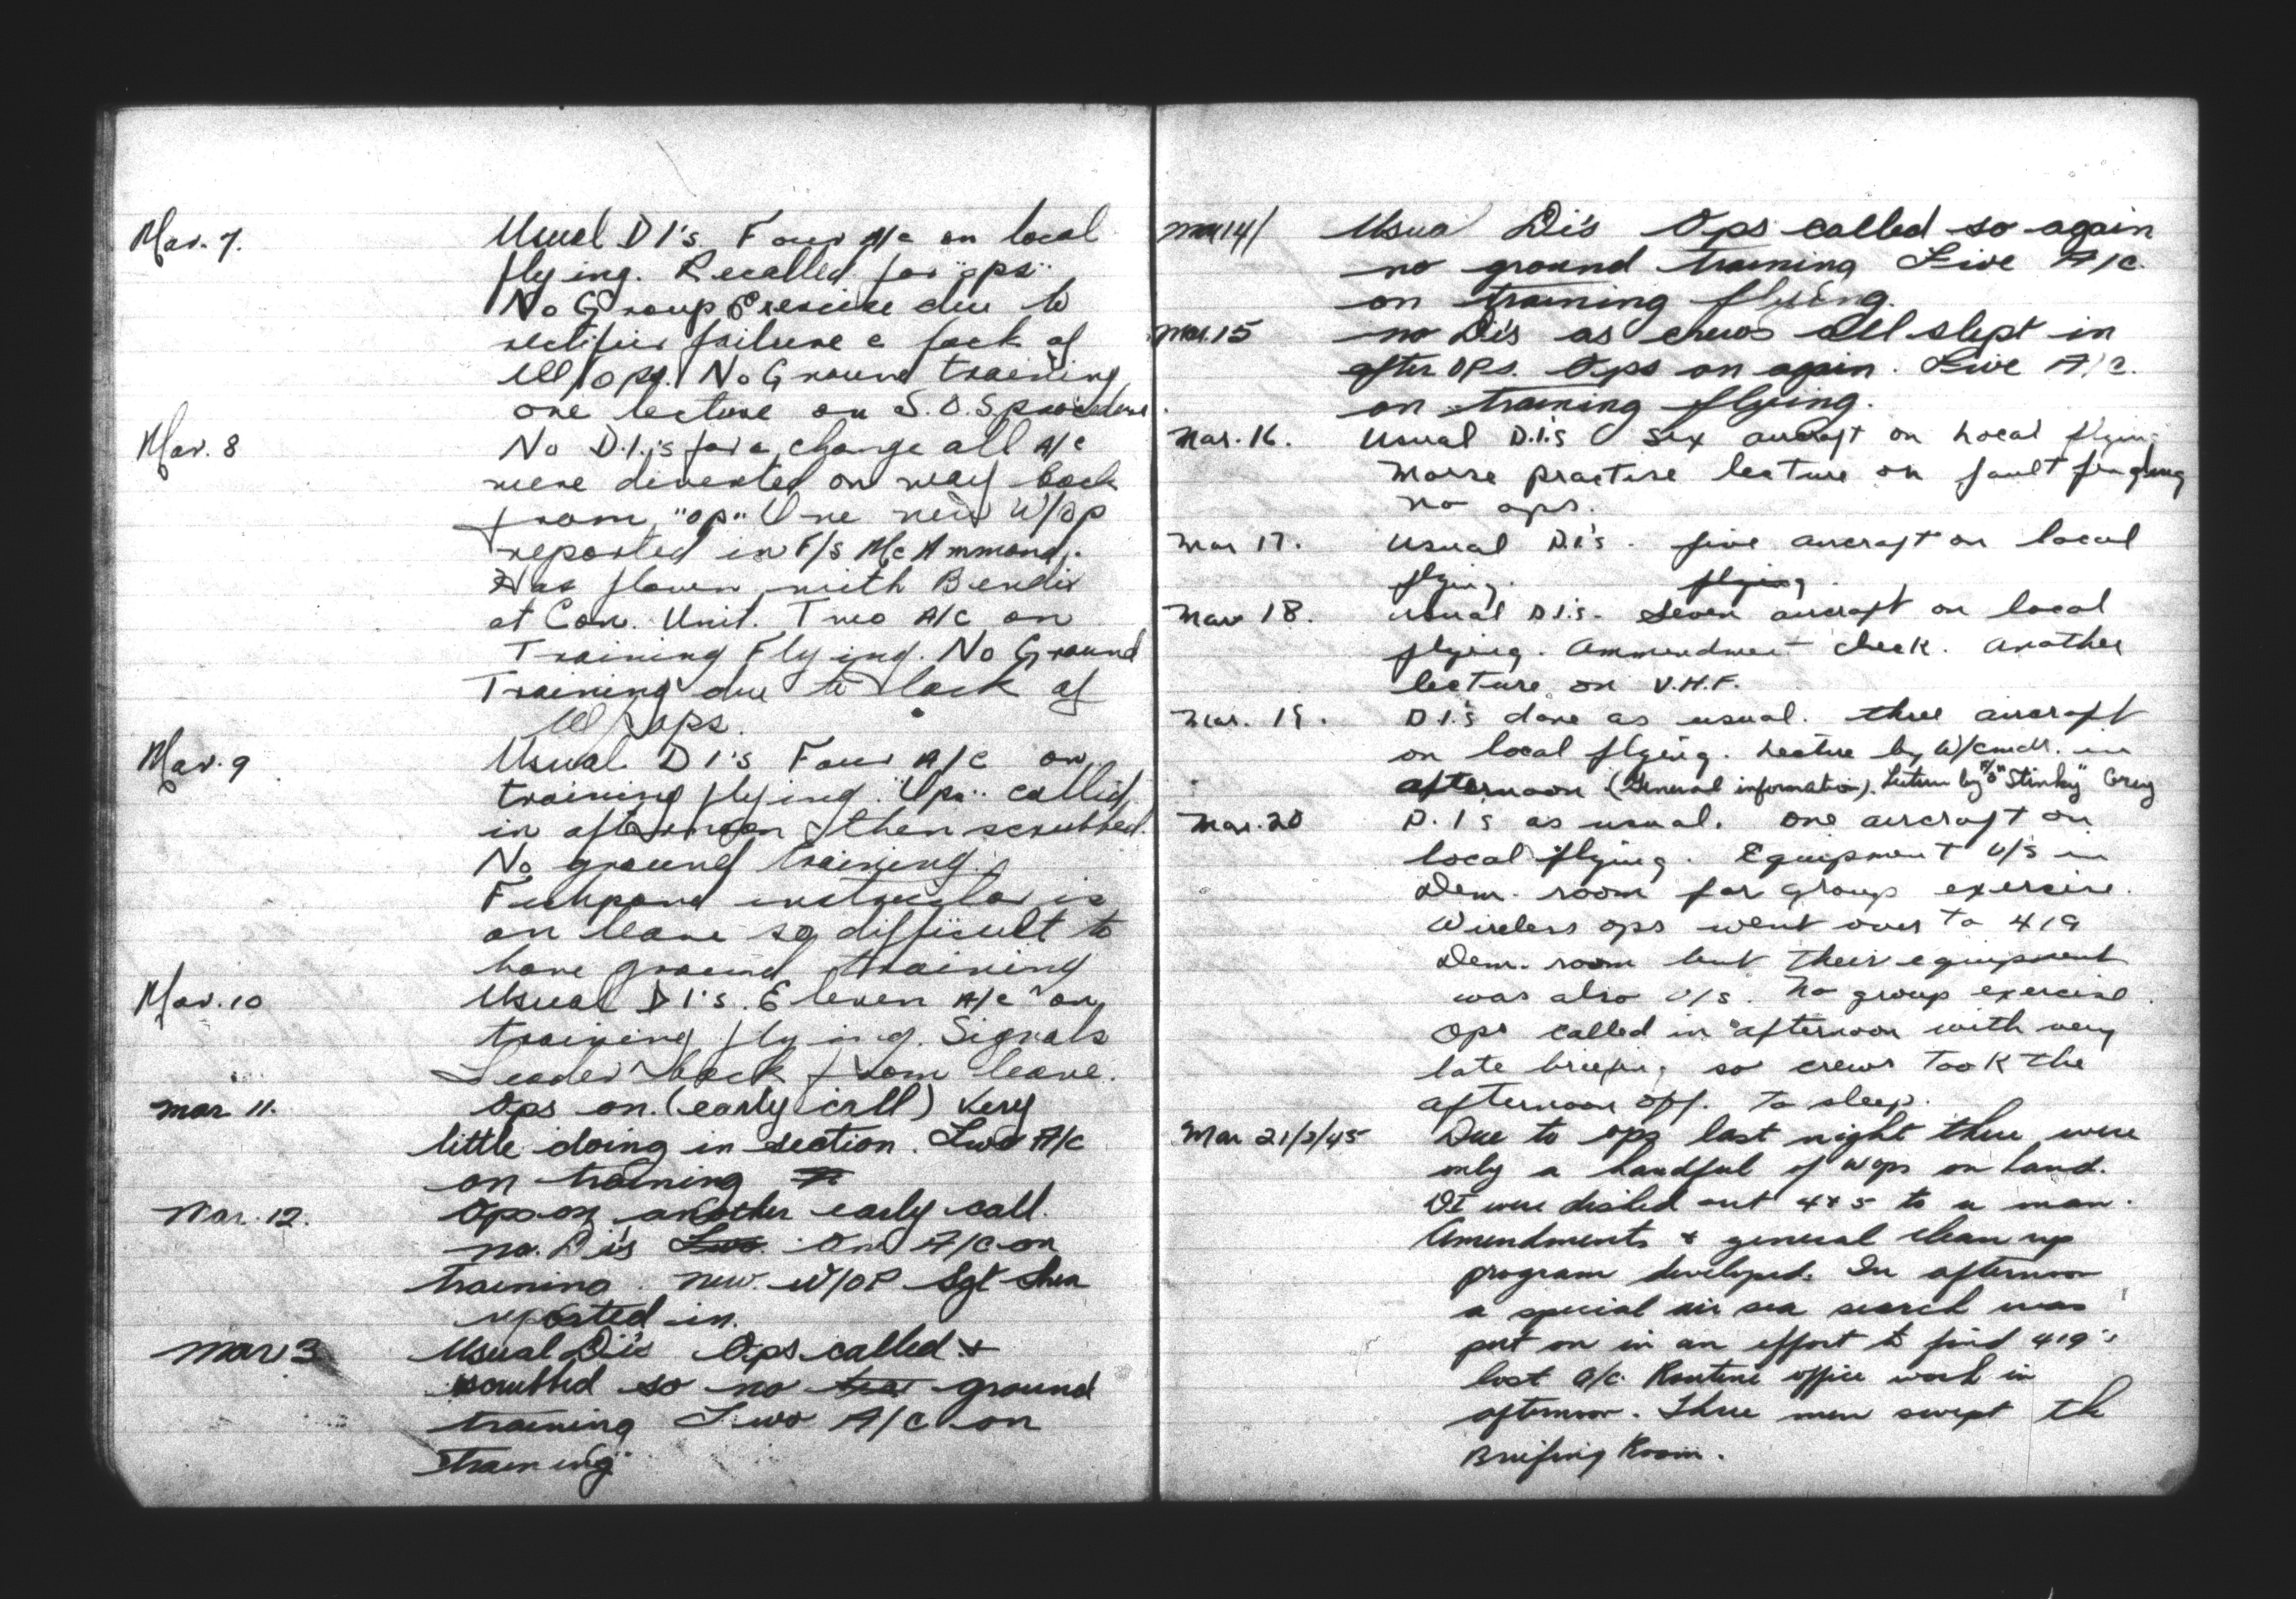 Mar. 7. Usual D I's. Four A/c on local
flying. Recalled for "ops"
No Group Exercise due to
rectifier failure & lack of
W/ops. No Ground training
one lecture on S.O.S procedure.
Mar. 8 No D.I.'s for a change all A/c
were diverted on way back
from "op" One new W/Op
reported in F/S McAmmond.
Has flown with Bendix
at Con. Unit. Two A/C on
Training Flying. No Ground
Training due to lack of
W/ops.
Mar. 9 Usual D I's Four A/C on
training flying. "Ops" called
in afternoon & then scrubbed.
No ground training.
Fishpond instructor is
on leave so difficult to
have ground training
Mar. 10 Usual D I's. Eleven A/c on
training flying. Signals
Leader back from leave.
Mar 11. Ops on. (early call) Very
little doing in section. Two A/c
on training
Mar. 12. Ops on another early call.
no. Di's Two. One A/c on
training. new. W/OP Sgt
reported in.
Mar 13 Usual Di's Ops called &
scrubbed so no ground
training Two A/C on
training
Mar 14/ Usual Di's Ops called so again
no ground training Five A/c.
on training flying.
Mar. 15 no Di's as crews all slept in
after OPs. Ops on again. Five A/c.
on training flying.
Mar. 16. Usual D.I.'s Six aircraft on local flying
Morse practise lecture on fault finding
no ops.
Mar 17. Usual D.I's. five aircraft on local
flying. flying.
Mar 18. usual D I.'s. Seven aircraft on local
flying. Ammendment check. Another
lecture on V.H.F.
Mar. 19. D I.'s done as usual. three aircraft
on local flying. Lecture by W/cmdr. in
afternoon (General information). Lecture by F/O "Stinky" Grey
Mar. 20 D. I's as usual. One aircraft on
local flying. Equipment U/S in
Dem. room for group exercise.
Wireless ops went over to 419
Dem. room but their equipment
was also U/S. No group exercise.
Ops called in afternoon with very
late briefing so crews took the
afternoon off. to sleep.
Mar 21/3/45 Due to ops last night there were
only a handful of wops on hand.
DI were dished out 4 & 5 to a man.
Amendments & general clean up
program developed. In afternoon
a special air sea search was
put on in an effort to find 419's
lost a/c. Routine office work in
afternoon. Three men swept the
Briefing Room.